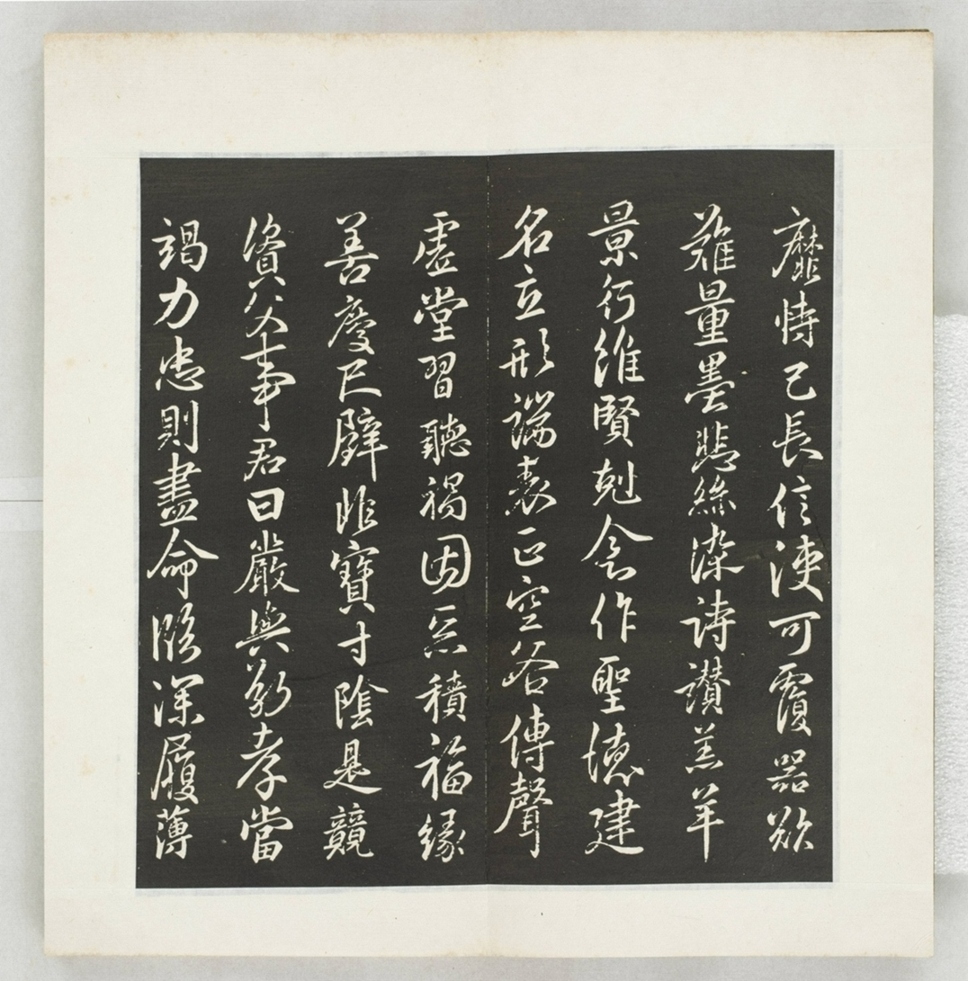 靡恃己長信使可覆器欲
難量墨悲絲染詩讚羔羊
景行維賢剋念作聖德建
名立形端表正空谷傳聲
虛堂習聽禍因惡積福緣
善慶尺璧非寶寸陰是競
資父事君曰嚴與敬孝當
竭力忠則盡命臨深履薄